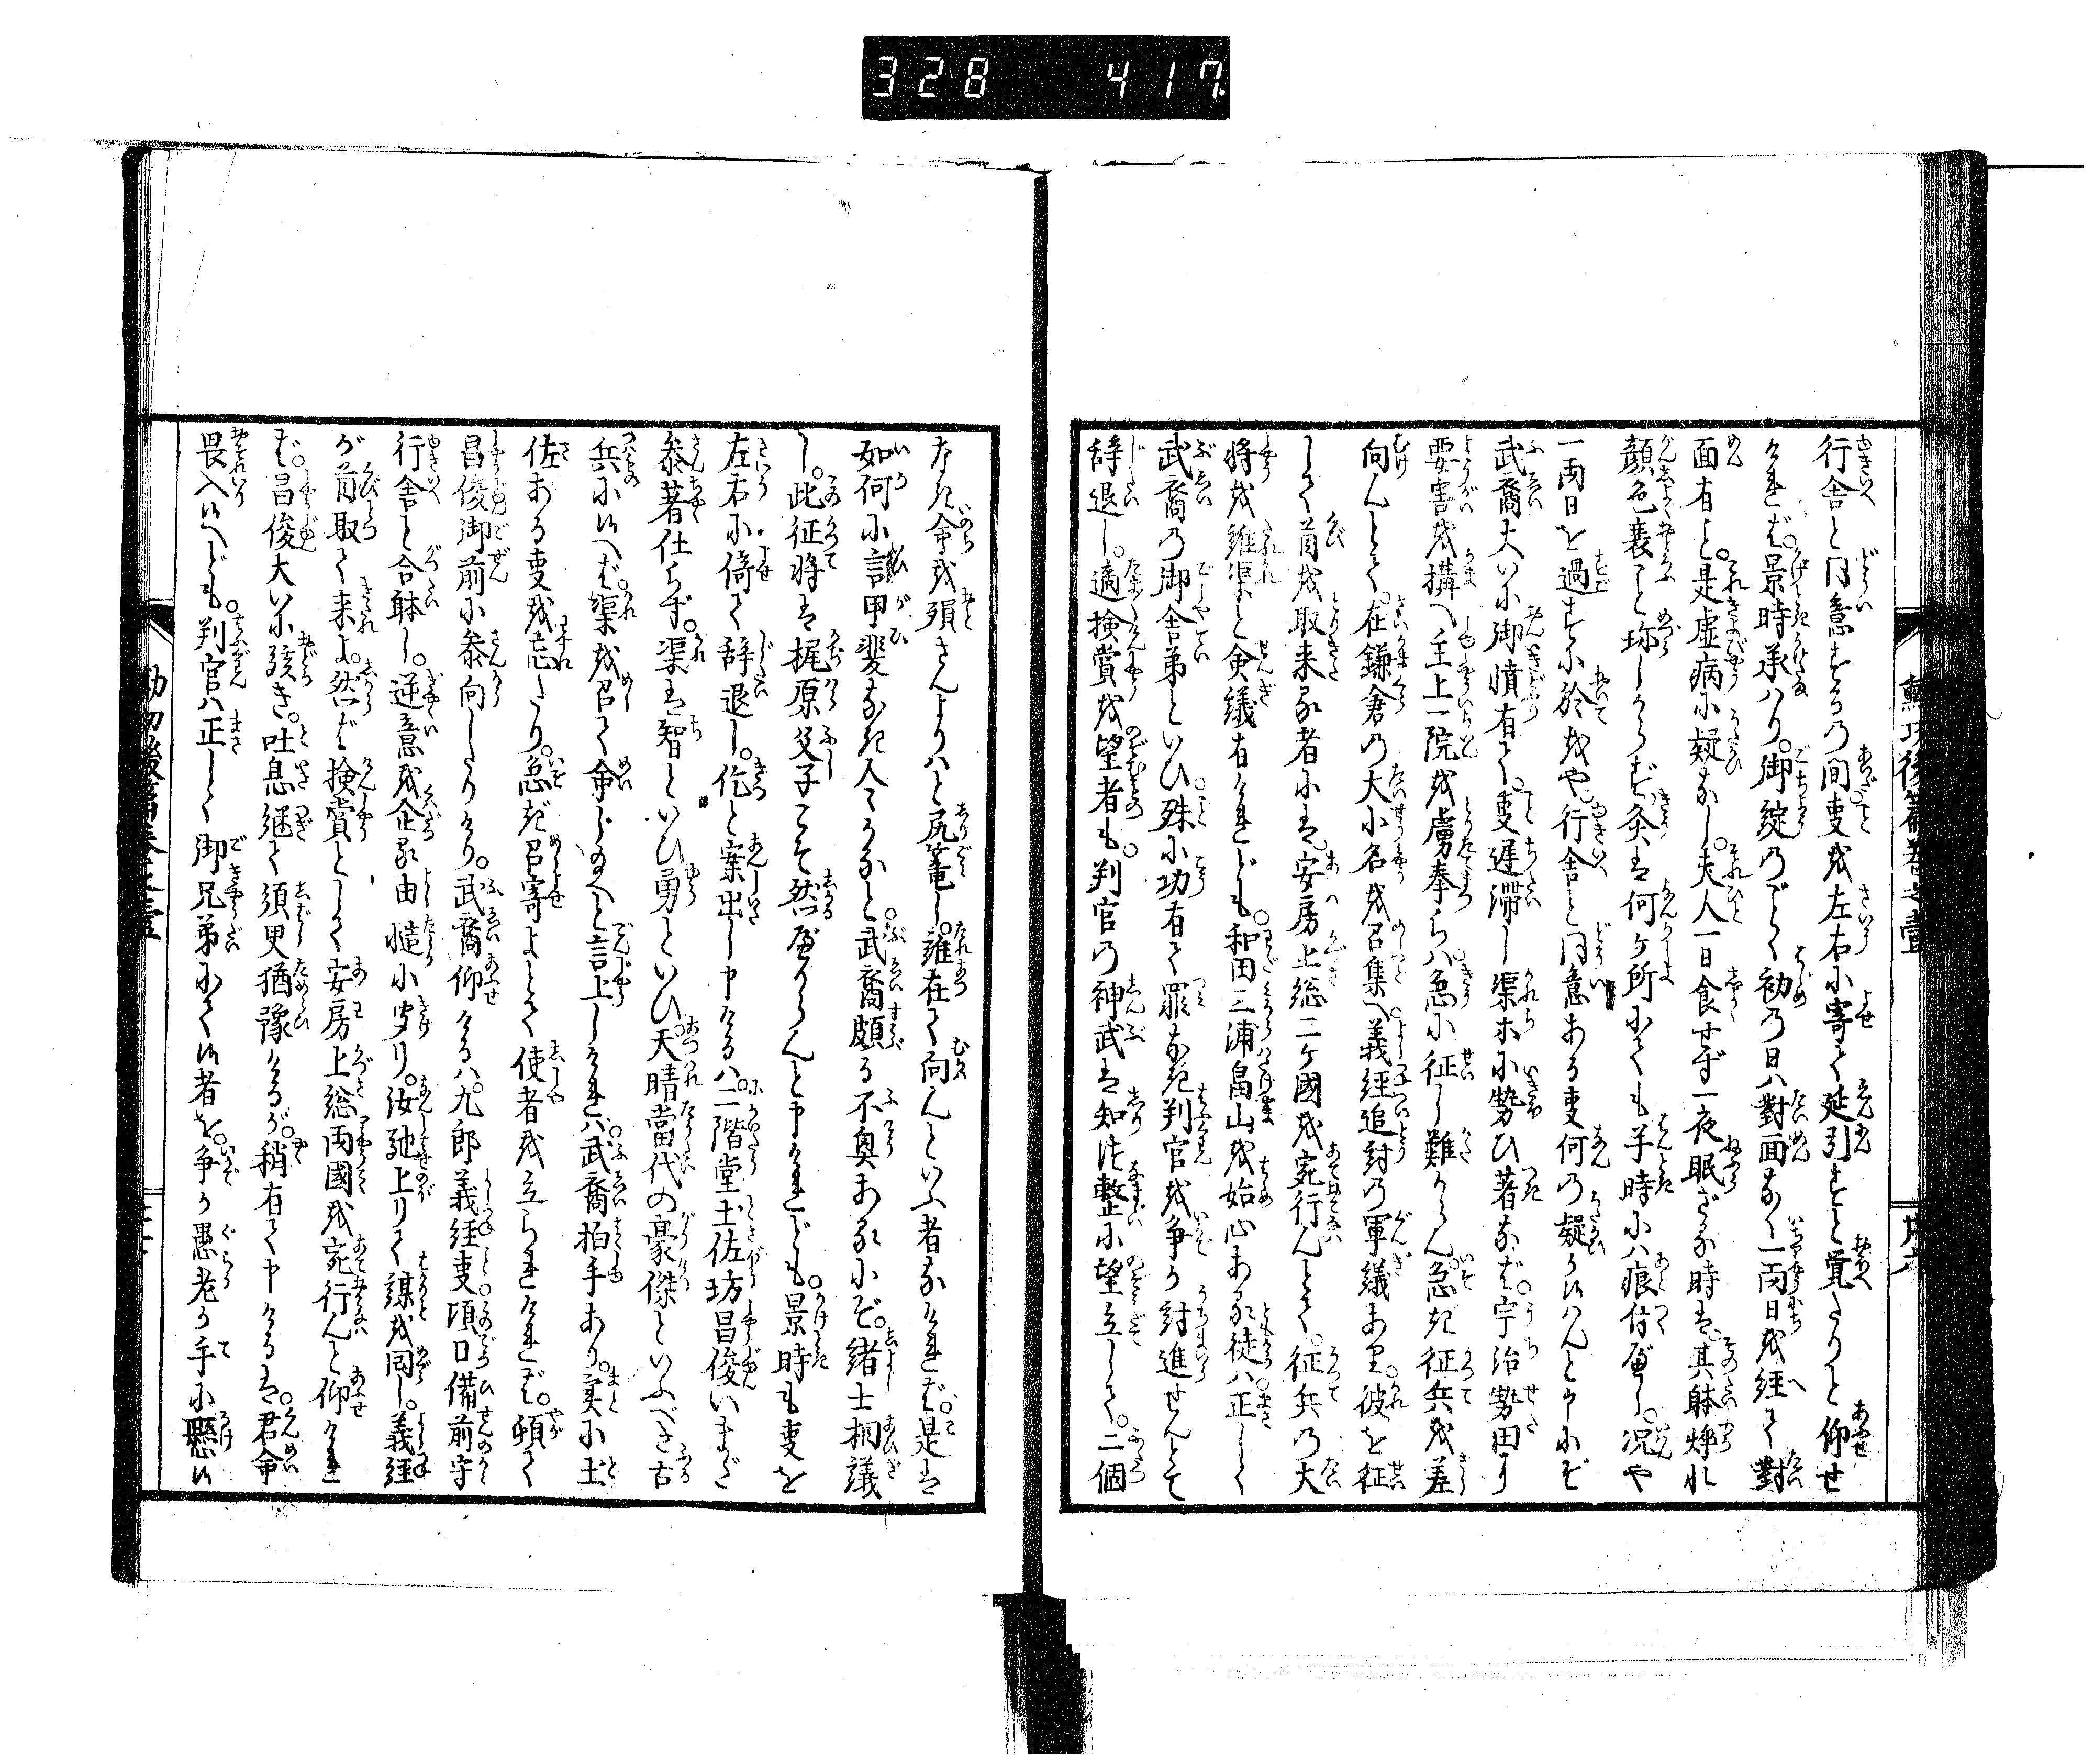 328 417
行舎と同意するの間事を左右に寄て延引すと覚たりと仰せ
ければ。景時承ハり。御綻のごとく初の日ハ對面なく一両日を経て對
面有しと。是虚病に疑なし。夫人一日食せず一夜眠ざる時は。其躰悴れ
顔色衰こと珎しからず灸は何ケ所にても半時に八痕付べし。况や
一両日を過すに於をや。行舎と同意ある事何の疑か候はんと申にぞ
武衛大いに御憤有て。事遅滞し渠等に勢ひ著なば。宇治勢田に
要害を搆へ主上一院を虜奉らバ。急に征し難からん。急ぎ征兵を差
向んとて。在鎌倉の大小名を召集へ義経追討の軍議あり。彼を征
して首を取来る者には。安房上総二ケ國を宛行んとて。征兵の大
将を誰渠と僉議有けれども。和田三浦畠山を始心ある徒ハ正しく
武衛の御舎弟といひ。殊に功有て罪なき判官を争か討進せんとて
辞退し。適検賞を望者も。判官の神武は知つ。整に望立して。二個
なき命を殞さんよりハと尻篭し。誰在て向んといふ者なければ。是は
如何に言甲斐なき人々かなと。武衛頗る不興あるにぞ。緒士相議
し。此征将は梶原父子こそ然べからんと申けれども。景時も事を
左右に倚て辞退し。屹と案出し申けるハ。二階堂土佐坊昌俊いまだ
参著仕らず。渠は智といひ勇といひ。天晴當代の豪傑といふべき古
兵に候へば。渠を召て命じ給へと言上しければ。武衛拍手あり。実に土
佐ある事を忘たり。急ぎ召寄よとて使者を立られければ。頓て
昌俊御前に参向したりけり。武衛仰けるハ。九郎義経事頃日備前守
行舎と合躰し。逆意を企る由慥に聞り。汝馳上りて謀を囘し。義経
が首取て来よ。然ば検賞として安房上総両國を宛行んと仰けれ
ば。昌俊大いに駭き。吐息継て須臾猶豫けるが。稍有て申けるは。君命
畏入候へども。判官ハ正しく御兄弟にて候者を。争か愚老か手に懸候